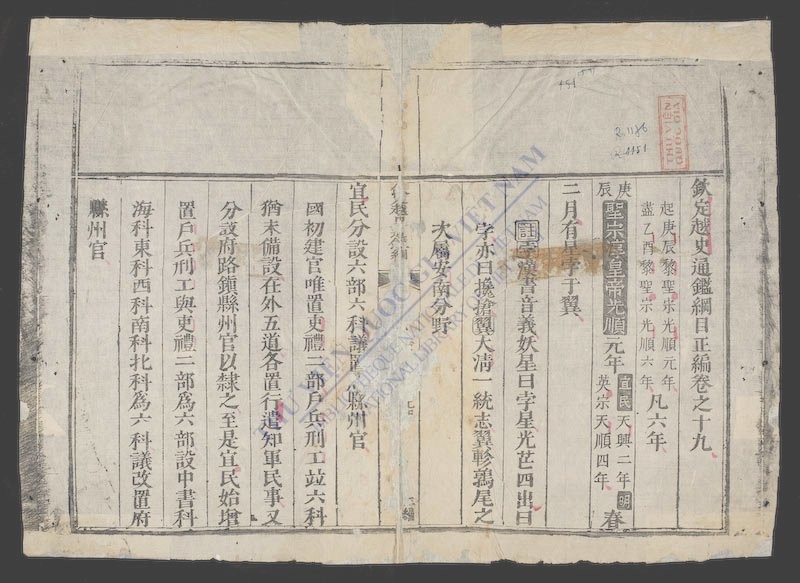 欽定越史通鑑綱目正編卷之十九
起庚辰黎聖宗光順元年
盡乙酉黎聖宗光順六年
凡六年
庚辰
聖宗淳皇帝光順元年
宜民天興二年
明英宗天順四年
春
二月有星孛于翼
註孛漢書音義妖星曰孛星光芒四出曰
孛亦曰攙搶翼大清一統志翼軫鶉尾之
次屬安南分野
宜民分設六部六科議置 縣州官
國初建官唯置吏禮二部戶兵刑工竝六科
猶未備設在外五道各置行遣知軍民事又
分設府路鎭縣州官以隸之至是宜民始增
置戶兵刑工與吏禮二部爲六部設中書科
海科東科西科南科北科爲六科議改置府
縣州官
THƯ VIỆN QUỐC GIA VIỆT NAM
BIBLIOTHÈQUE NATIONALE DU VIETNAM
NATIONAL LIBRARY OF VIETNAM
THU VIEN
QUOC GIA